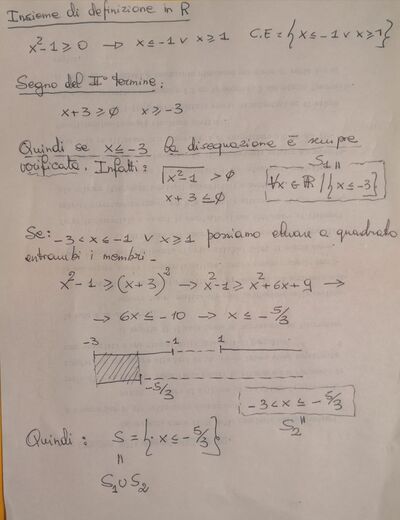 Insieme di definizione in R
x²-1 ≥ 0 → x ≤ -1 ∨ x ≥ 1 C.E = { x ≤ -1 ∨ x ≥ 1 }
Segno del II° termine:
x+3 ≥ 0 x ≥ -3
Quindi se x ≤ -3 la disequazione è sempre
verificata. Infatti: √x²-1 > 0
x+3 ≤ 0
S₁ =
∀x ∈ R / { x ≤ -3 }
Se: -3 < x ≤ -1 ∨ x ≥ 1 possiamo elevare a quadrato
entrambi i membri -
x²-1 ≥ (x+3)² → x²-1 ≥ x²+6x+9 →
→ 6x ≤ -10 → x ≤ -5/3
-3 -1 1
-5/3
-3 < x ≤ -5/3
S₂ =
Quindi: S = { x ≤ -5/3 }
=
S₁ ∪ S₂